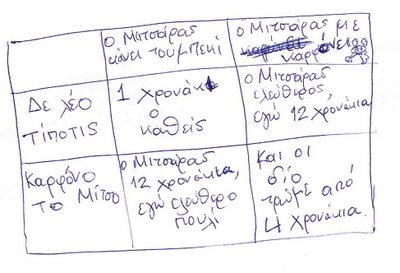 ο Μιτσάρας
κάνει τουμπεκί
ο Μιτσάρας με
καρφόνει
Δε λέο
τίποτις
1 χρονάκι
ο
καθείς
ο Μιτσάρας
ελεύθερος,
εγώ 12 χρονάκια
Καρφόνο
το Μίτσο
ο Μιτσάρας
12 χρονάκια,
εγώ ελεύθερο
πουλί
Και οι
δίο
τρόμε από
4 χρονάκια.